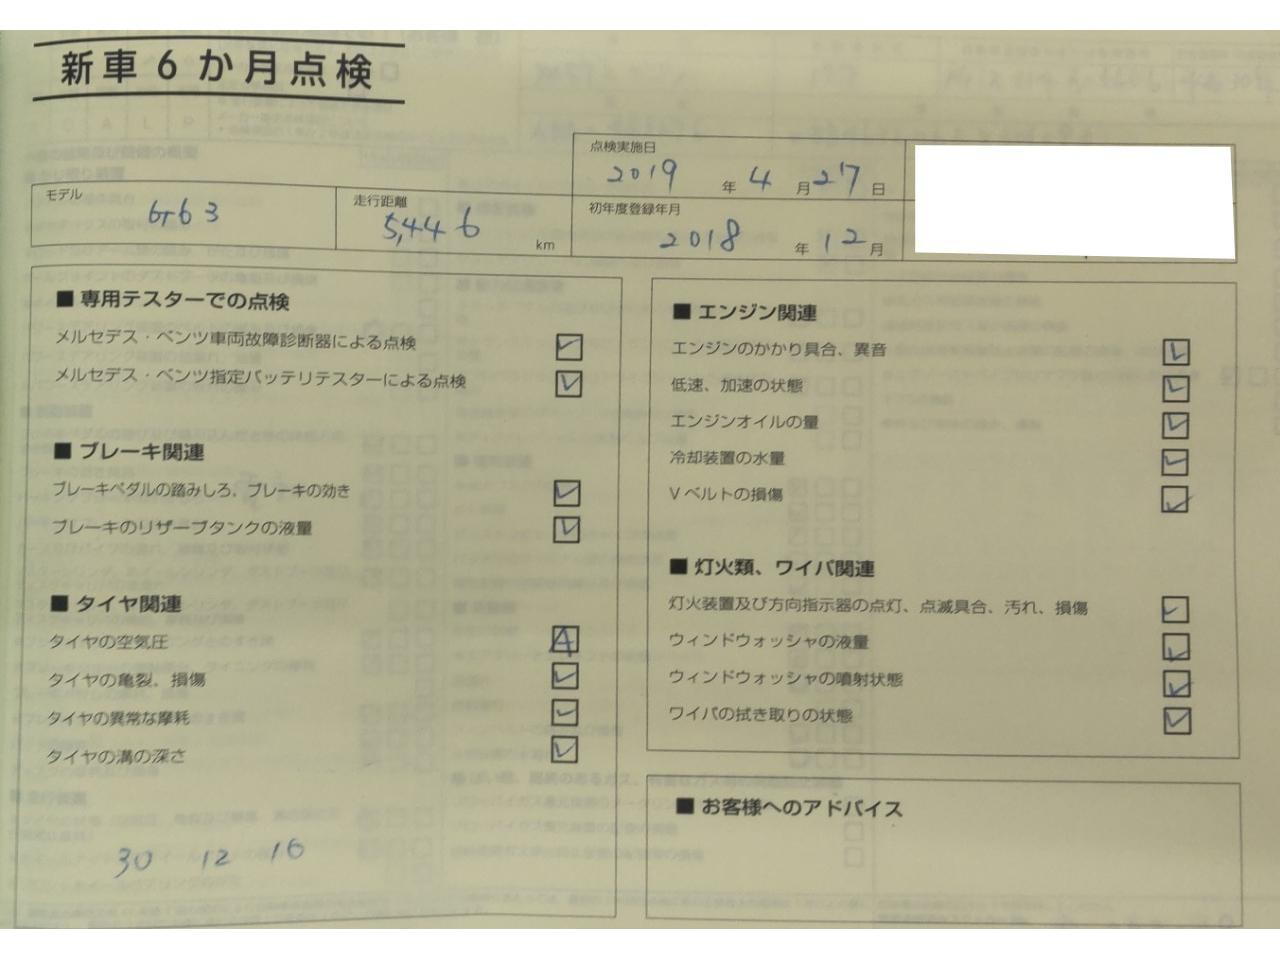 新車6か月点検
点検実施日
2019 年 4 月 27 日
モデル
G63
走行距離
5,446 km
初年度登録年月
2018 年 12 月
■ 専用テスターでの点検
メルセデス・ベンツ車両故障診断器による点検 ✓
メルセデス・ベンツ指定バッテリテスターによる点検 ✓
■ ブレーキ関連
ブレーキペダルの踏みしろ、ブレーキの効き ✓
ブレーキのリザーブタンクの液量 ✓
■ タイヤ関連
タイヤの空気圧 A
タイヤの亀裂、損傷 ✓
タイヤの異常な摩耗 ✓
タイヤの溝の深さ ✓
30 12 16
■ エンジン関連
エンジンのかかり具合、異音 ✓
低速、加速の状態 ✓
エンジンオイルの量 ✓
冷却装置の水量 ✓
Vベルトの損傷 ✓
■ 灯火類、ワイパ関連
灯火装置及び方向指示器の点灯、点滅具合、汚れ、損傷 ✓
ウィンドウォッシャの液量 ✓
ウィンドウォッシャの噴射状態 ✓
ワイパの拭き取りの状態 ✓
■ お客様へのアドバイス